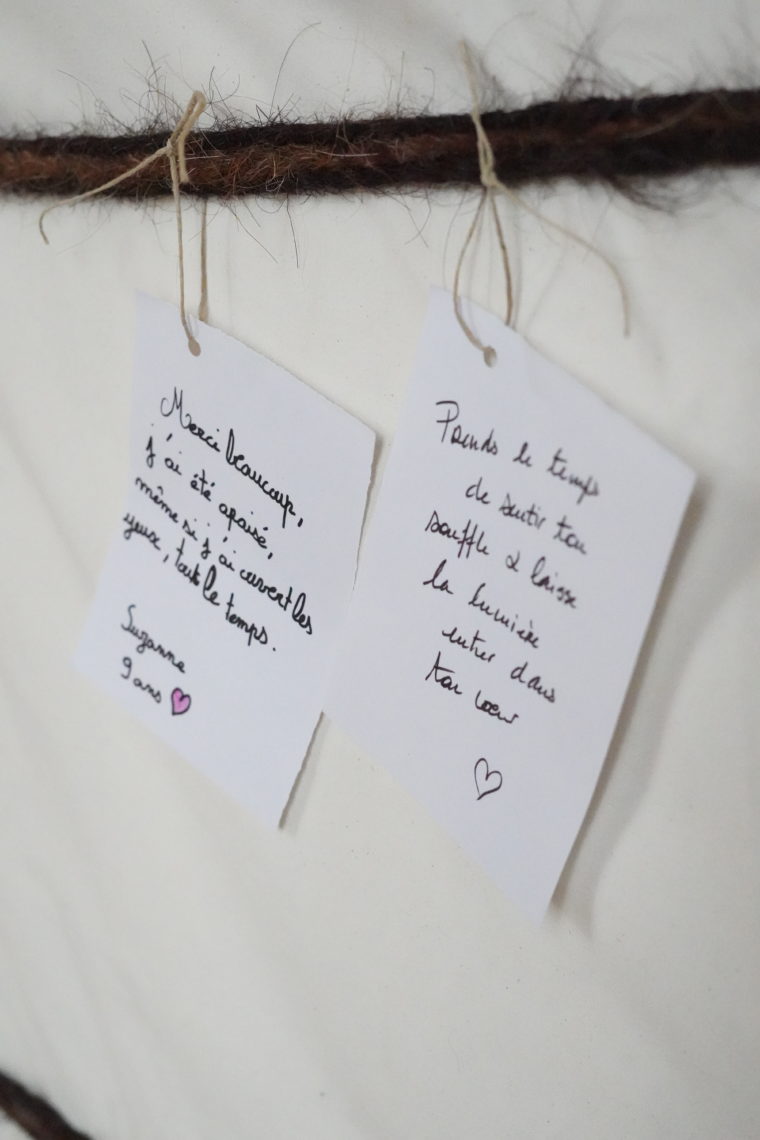 Merci beaucoup,
j'ai été apaisé,
même si j'ai ouvert les
yeux, tout le temps.
Suzanne
9 ans
Prends le temps
de sentir ton
souffle & laisse
la lumière
entrer dans
ton cœur